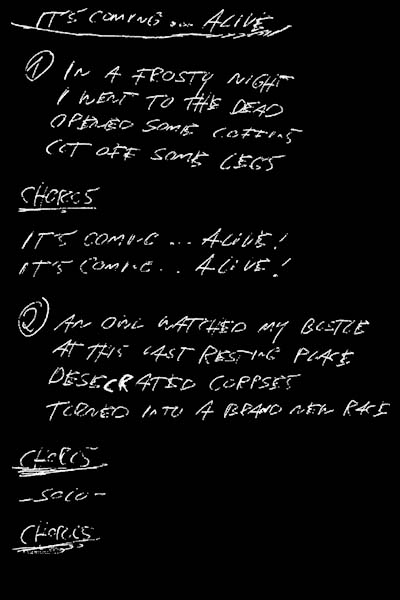 IT'S COMING... ALIVE
1 IN A FROSTY NIGHT
I WENT TO THE DEAD
OPENED SOME COFFINS
CUT OFF SOME LEGS
CHORUS
IT'S COMING... ALIVE!
IT'S COMING... ALIVE!
2 AN OWL WATCHED MY BUSTLE
AT THIS LAST RESTING PLACE
DESECRATED CORPSES
TURNED INTO A BRAND NEW RACE
CHORUS
- SOLO -
CHORUS